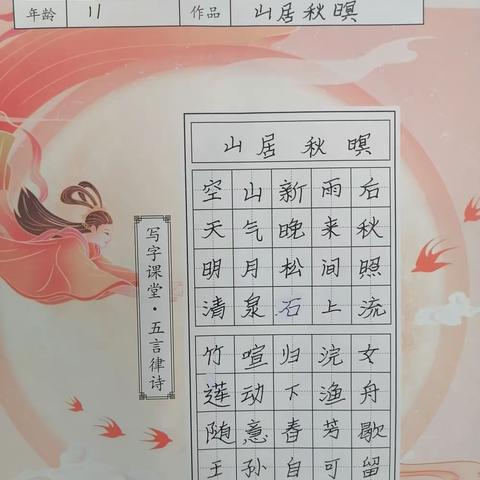 年龄 11 作品 山居秋暝
山居 秋 暝
空山新雨后
天气晚来秋
明月松间照
清泉石上流
竹喧归浣女
莲动下渔舟
随意春芳歇
王孙自可留
写字课堂·五言律诗